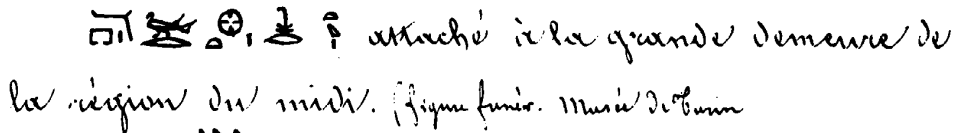 attaché à la grande demeure de
la région du midi. (figure funér. Musée de Turin